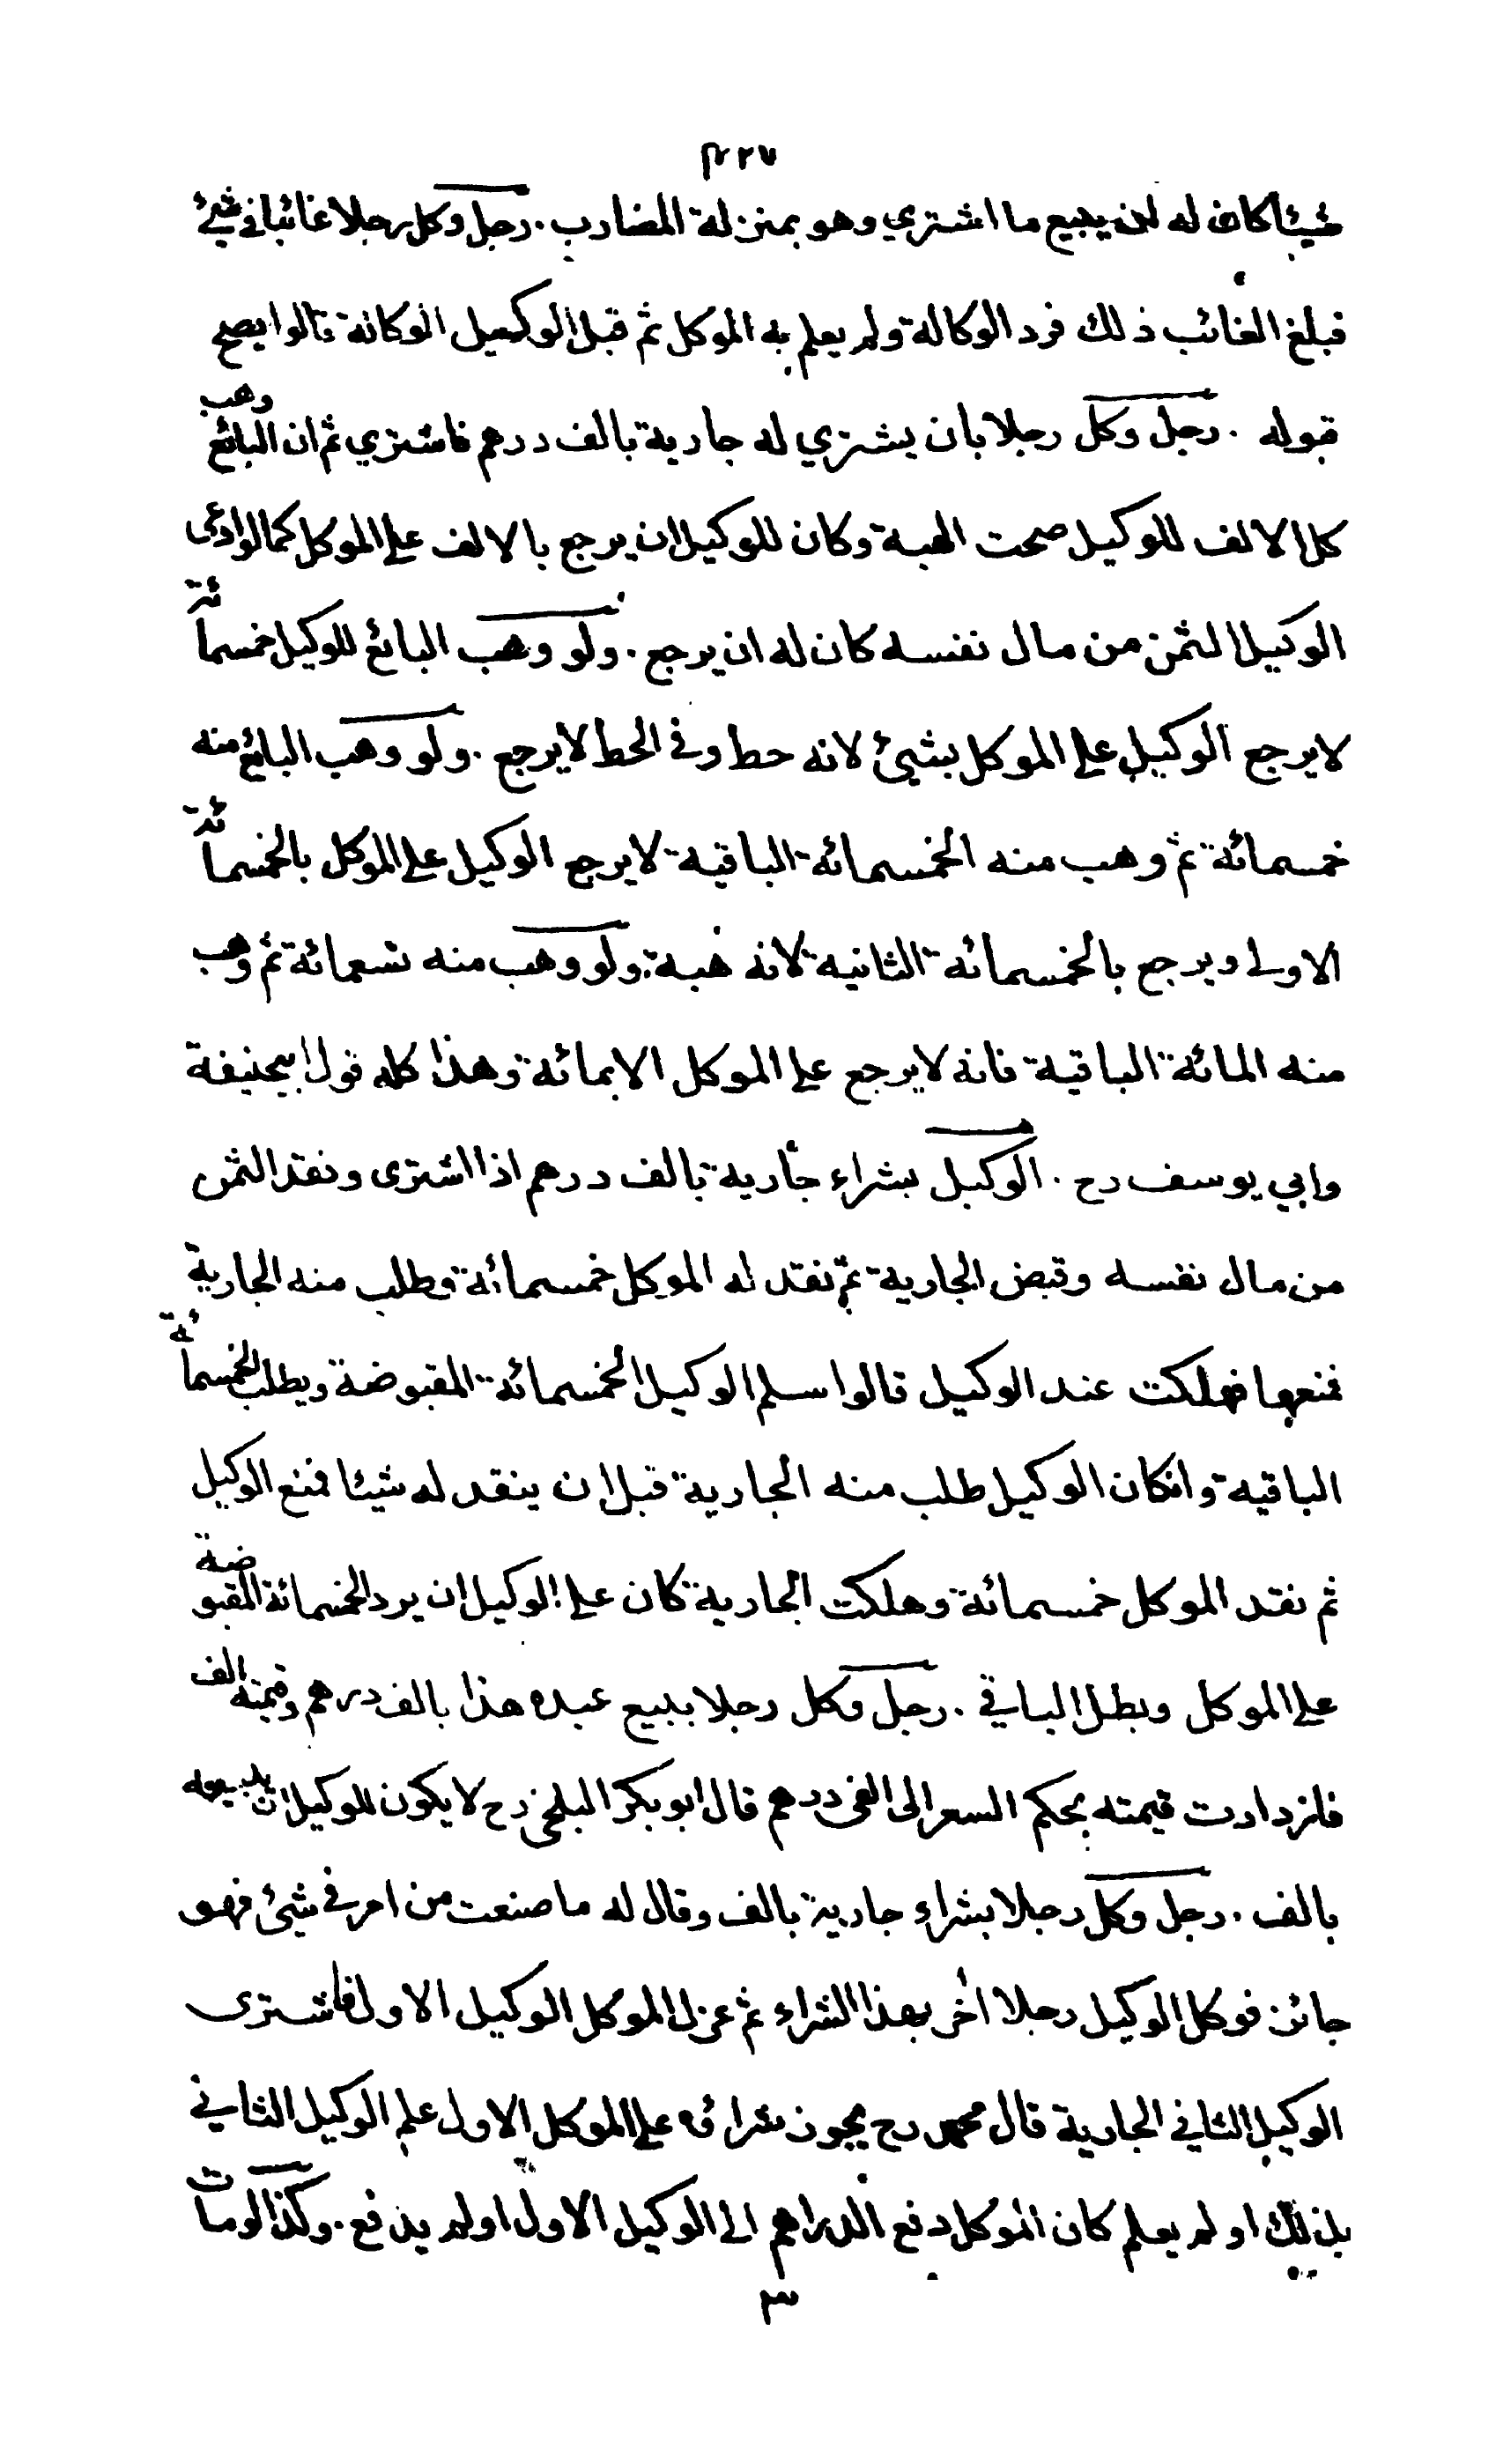 ٣٢٧
شيئا كان له ان يبيع ما اشتري وهو بمنزلة المضارب . رجل وكل رجلا غائبا في شيئ
فبلغ الغائب ذلك فرد الوكالة ولم يعلم به الموكل ثم قبل الوكيل الوكالة قالوا يصح
قبوله . رجل وكل رجلا بان يشتري له جارية بالف درهم فاشتري ثم ان البائع وهب
كل الالف للوكيل صحت الهبة وكان للوكيل ان يرجع بالالف على الموكل كما لو ادى
الوكيل الثمن من مال نفسه كان له ان يرجع . ولو وهب البائع للوكيل خمسمائة
لا يرجع الوكيل على الموكل بشيئ لانه حط وفي الحط لا يرجع . ولو وهب البائع منه
خمسمائة ثم وهب منه الخمسمائة الباقية لا يرجع الوكيل على الموكل بالخمسمائة
الاولى ويرجع بالخمسمائة الثانية لانه هبة . ولو وهب منه تسعمائة ثم وهب
منه المائة الباقية فانه لا يرجع على الموكل الا بمائة وهذا كله قول ابيحنيفة
وابي يوسف رح . الوكيل بشراء جارية بالف درهم اذا اشترى ونقد الثمن
من مال نفسه وقبض الجارية ثم نقد له الموكل خمسمائة وطلب منه الجارية
فمنعها فهلكت عند الوكيل قالوا سلم الوكيل الخمسمائة المقبوضة ويطلب الخمسمائة
الباقية وانكان الوكيل طلب منه الجارية قبل ان ينقد له شيئا فمنع الوكيل
ثم نقد الموكل خمسمائة وهلكت الجارية كان على الوكيل ان يرد الخمسمائة المقبوضة
على الموكل وبطل الباقي . رجل وكل رجلا ببيع عبده هذا بالف درهم وقيمته الف
فازدادت قيمته بحكم السعر الى الفى درهم قال ابو بكر البلخي رح لا يكون للوكيل ان يبيعه
بالف . رجل وكل رجلا بشراء جارية بالف وقال له ما صنعت من امر في شئ فهو
جائز فوكل الوكيل رجلا أخر بهذا الشراء ثم عزل الموكل الوكيل الاول فاشترى
الوكيل الثاني الجارية قال محمد رح يجوز شراؤه على الموكل الاول علم الوكيل الثاني
بذلك او لم يعلم كان الموكل دفع الدراهم الى الوكيل الاول او لم يدفع . وكذا لو مات
٣